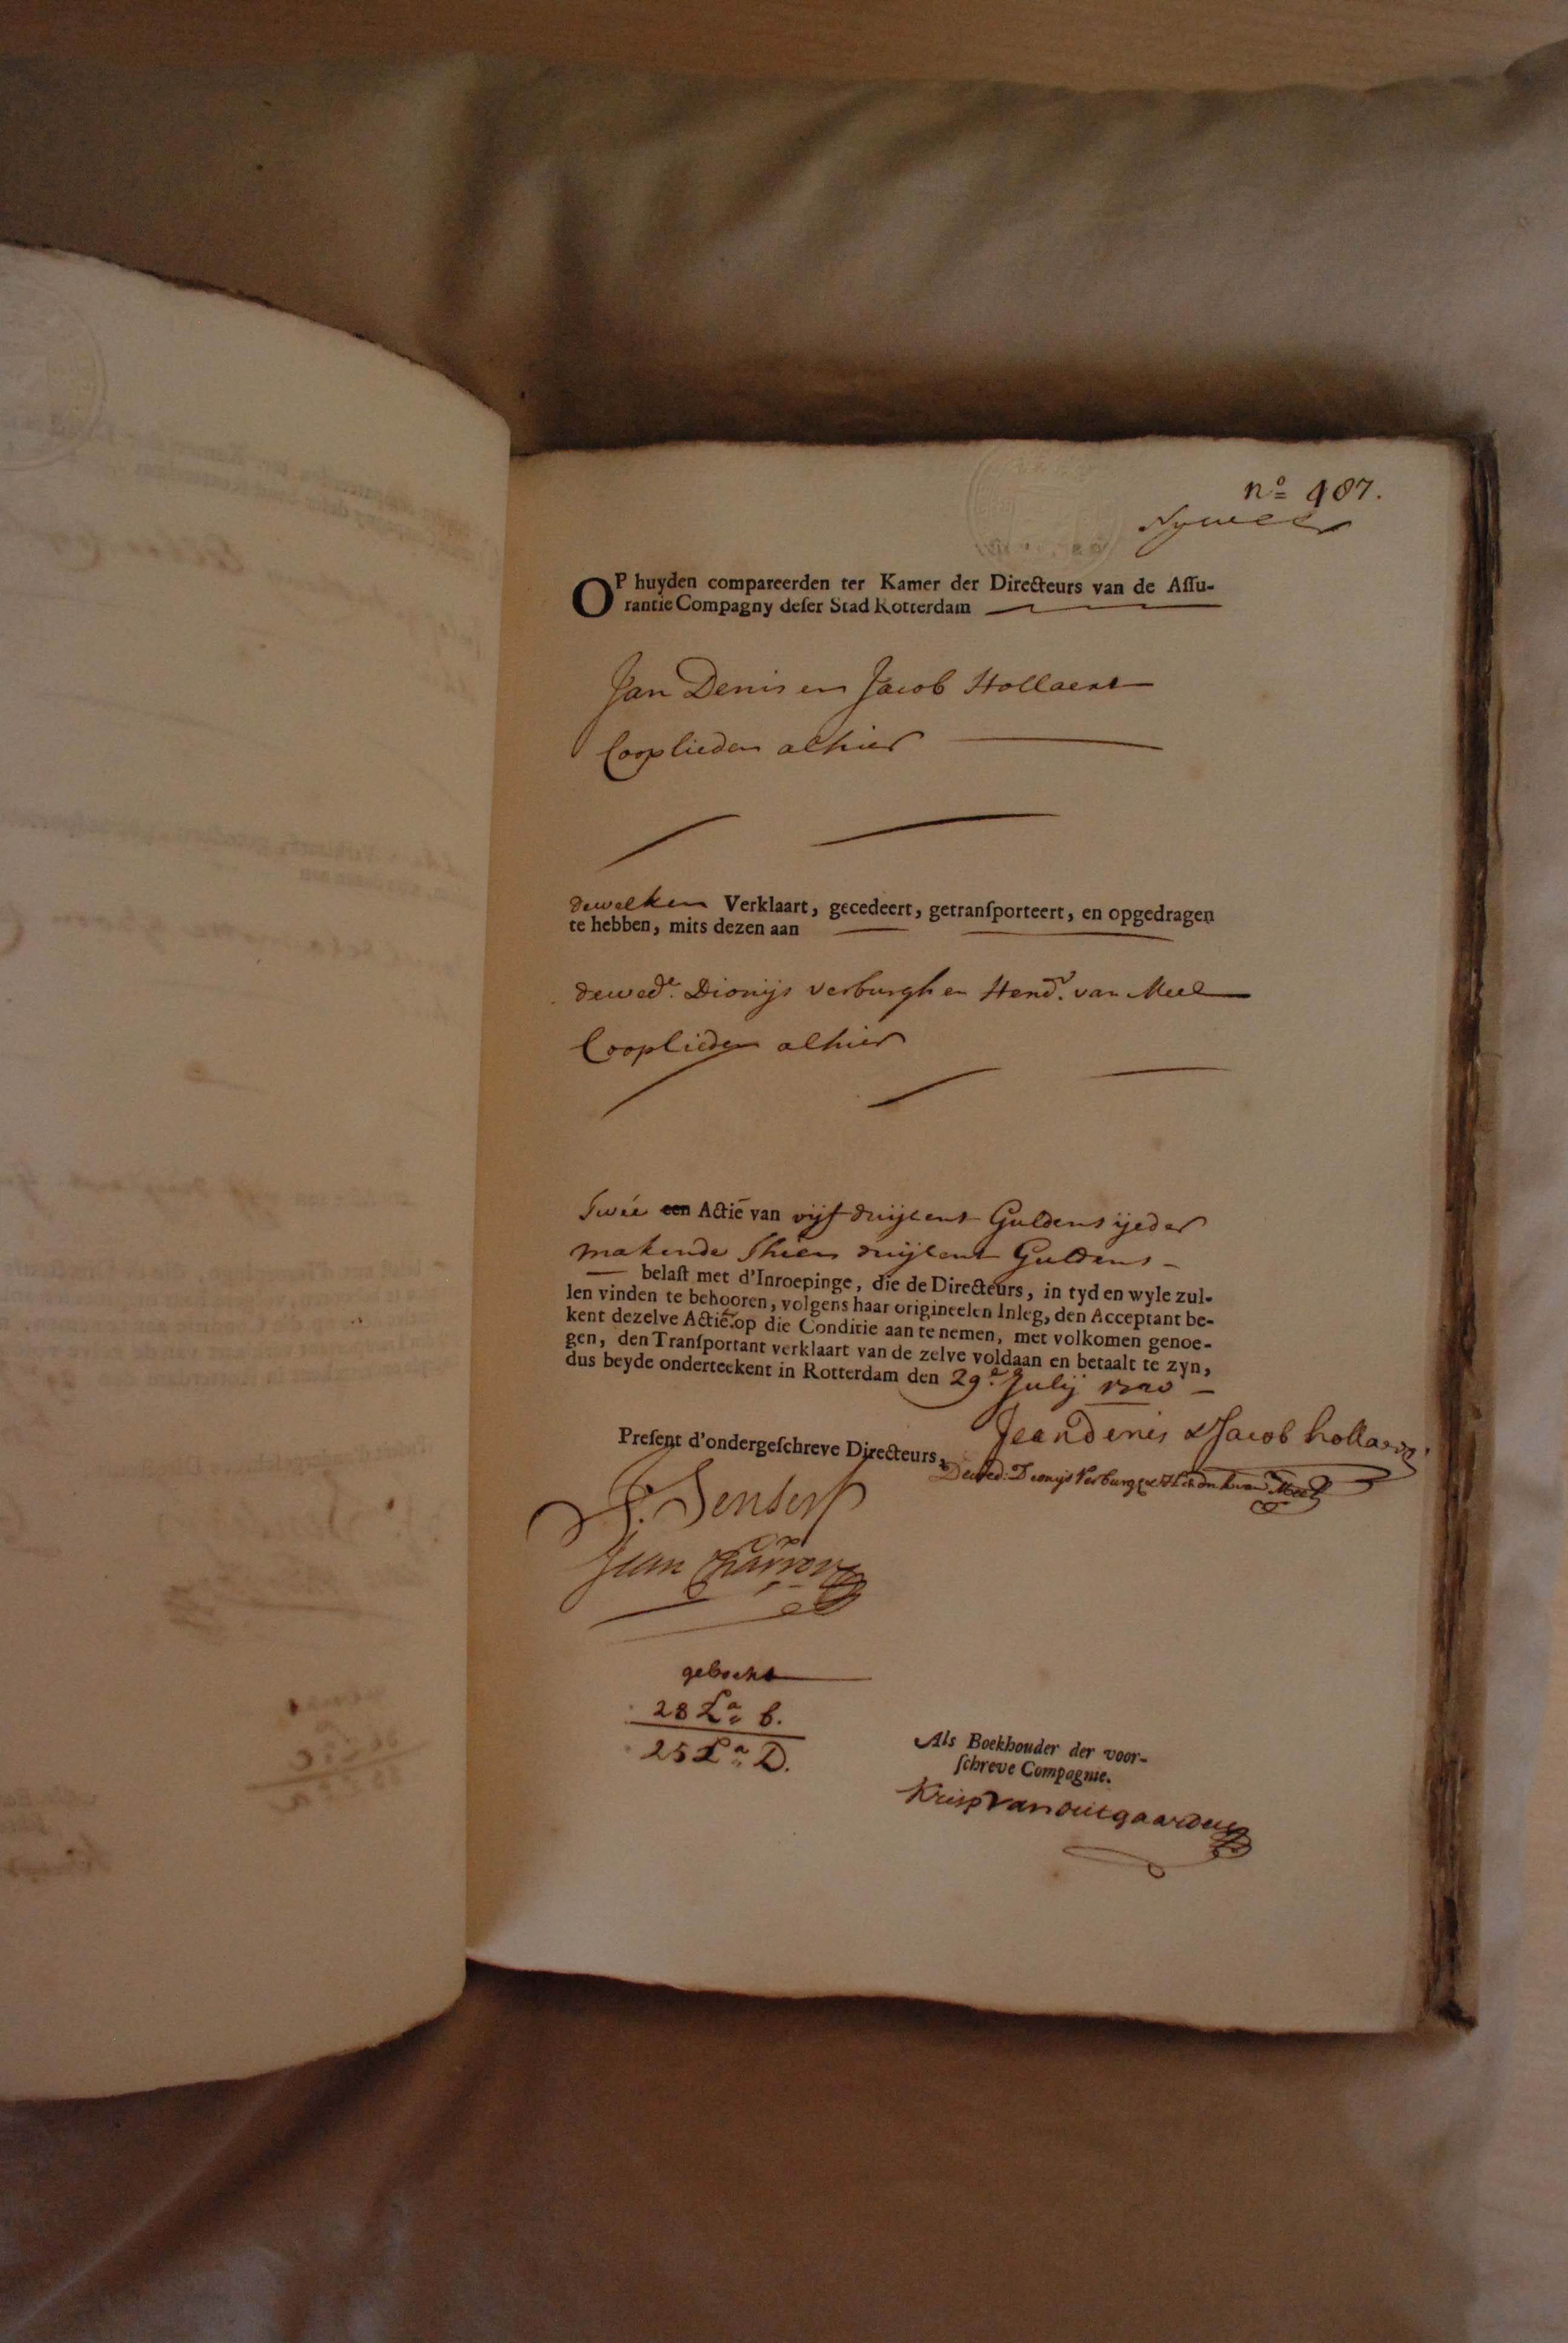 nº 487.
OP huyden compareerden ter Kamer der Directeurs van de Assu-
rantie Compagny deser Stad Rotterdam
Jan Denis en Jacob Hollaert
Cooplieden alhier
dewelken Verklaart, gecedeert, getransporteert, en opgedragen
te hebben, mits dezen aan
dewed.e Dionijs verburgh en Hend. van Meel
Cooplieden alhier
Twée een Actie van vijf duijsent Guldens ijeder
makende Thien duijsent Guldens
belast met d'Inroepinge, die de Directeurs, in tyd en wyle zul-
len vinden te behooren, volgens haar origineelen Inleg, den Acceptant be-
kent dezelve Actie op die Conditie aan te nemen, met volkomen genoe-
gen, den Transportant verklaart van de zelve voldaan en betaalt te zyn,
dus beyde onderteekent in Rotterdam den 29.e Julij 1720
Jean Denis & Jacob hollaert
Present d'ondergeschreve Directeurs,
Dewed: Dionijs Verburg & Hendr. van Meel
J. Senserf
Jean
geboekt
28 La. b.
25 La. D.
Als Boekhouder der voor-
schreve Compagnie.
Krisp Van outgaarden